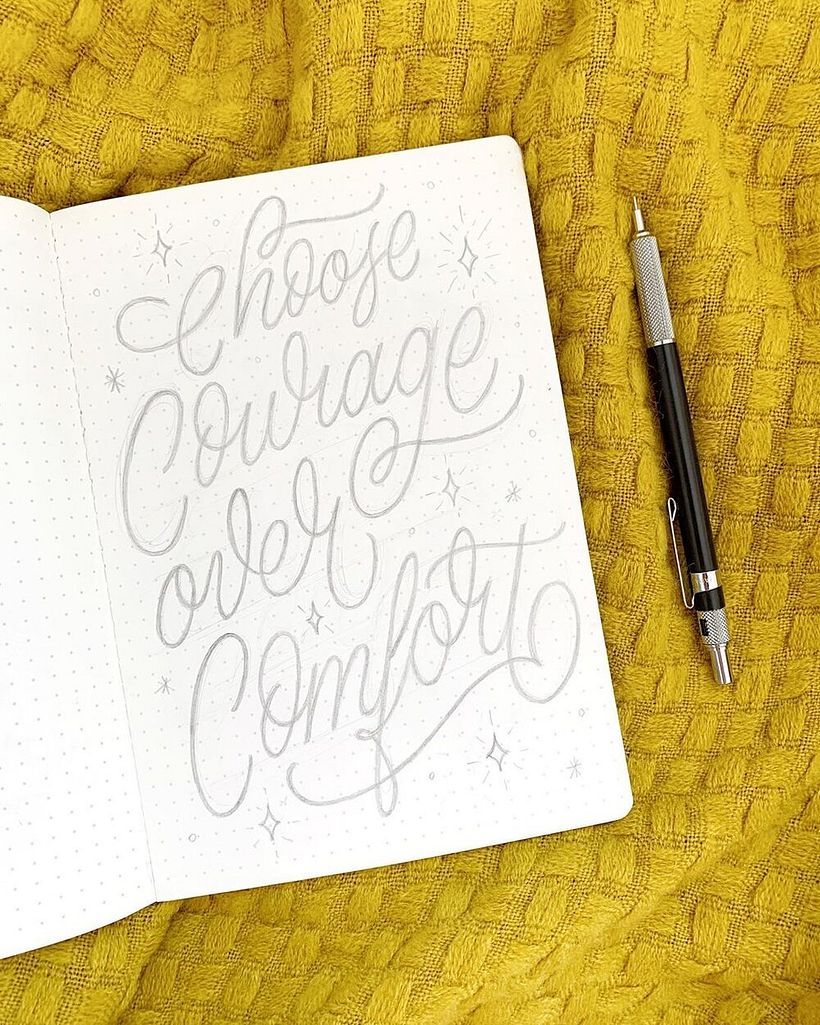 Choose
Courage
over
Comfort